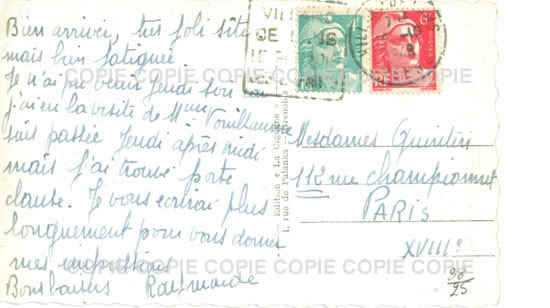 Bien arrivée, très joli site
mais bien fatiguée
Je n'ai pu venir Jeudi soir car
j'ai eu la visite de Mme Vouillaume
suis passée Jeudi après midi
mais j'ai trouvé porte
close. Je vous écrirai plus
longuement pour vous donner
mes impressions
Bons baisers Raymonde
Edition « La Cigogne »
1, rue de Palanka - Grenoble
Mesdames
112 rue Championnet
PARIS
XVIIIe
98
25
COPIE COPIE COPIE COPIE COPIE COPIE
COPIE COPIE COPIE COPIE COPIE COPIE
COPIE COPIE COPIE COPIE COPIE COPIE